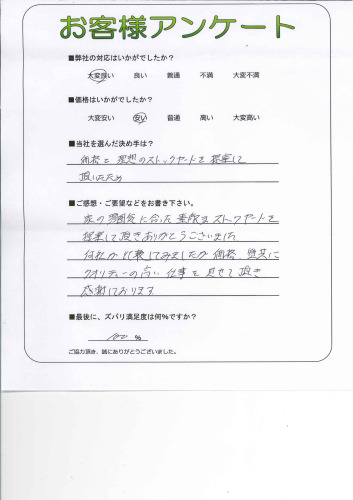 お客様アンケート
■弊社の対応はいかがでしたか？
大変良い 良い 普通 不満 大変不満
■価格はいかがでしたか？
大変安い 安い 普通 高い 大変高い
■当社を選んだ決め手は？
価格と理想のストックヤードを提案して
頂いたため
■ご感想・ご要望などをお書き下さい。
家の雰囲気に合った素敵なストックヤードを
提案して頂きありがとうございました
何社か比較してみましたが価格、
クオリティーの高い仕事を見せて頂き
感謝しております
■最後に、ズバリ満足度は何%ですか？
100 %
ご協力頂き、誠にありがとうございました。